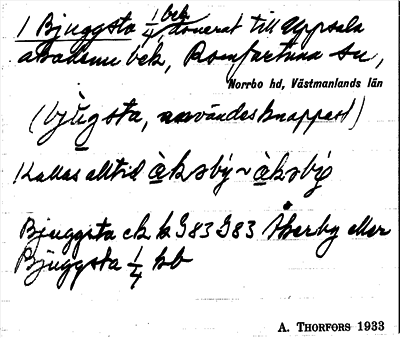 1 Bjuggsta 1/4 bek donerat till Uppsala
akademi bek, Romfartuna sn,
Norrbo hd, Västmanlands län
(bjùgsta, användes knappast)
Kallas alltid àkərby ~ àkəby
Bjuggsta ek k G83 G83 Åkerby eller
Bjuggsta 1/4 hb
A. THORFORS 1933